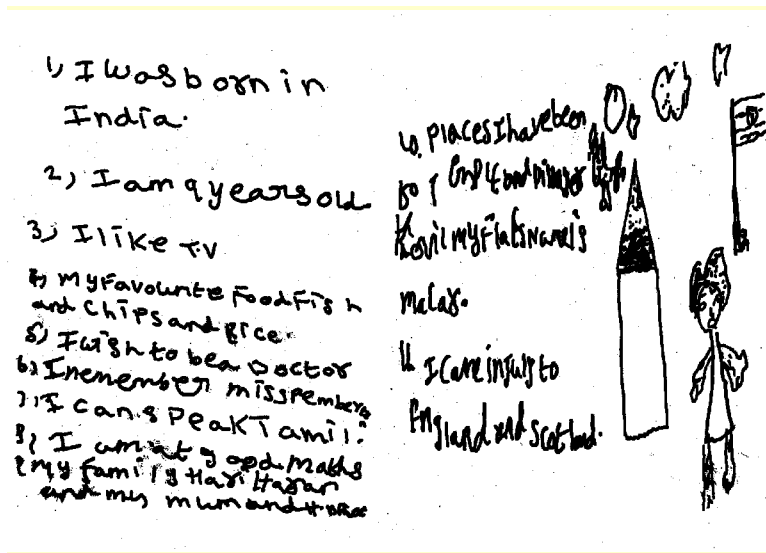 1) I was born in
India.
2) I am 9 years old
3) I like TV
4) My Favourite Food Fish
and Chips and Rice.
5) I wish to be a Doctor
6) I remember miss pember
7) I can speak Tamil.
8) I am at good maths
9 My family Hari Haran
and my mum and
10. Places I have been
to
Kovil My Flats Name is
Malar.
11 I came in July to
England and Scotland.